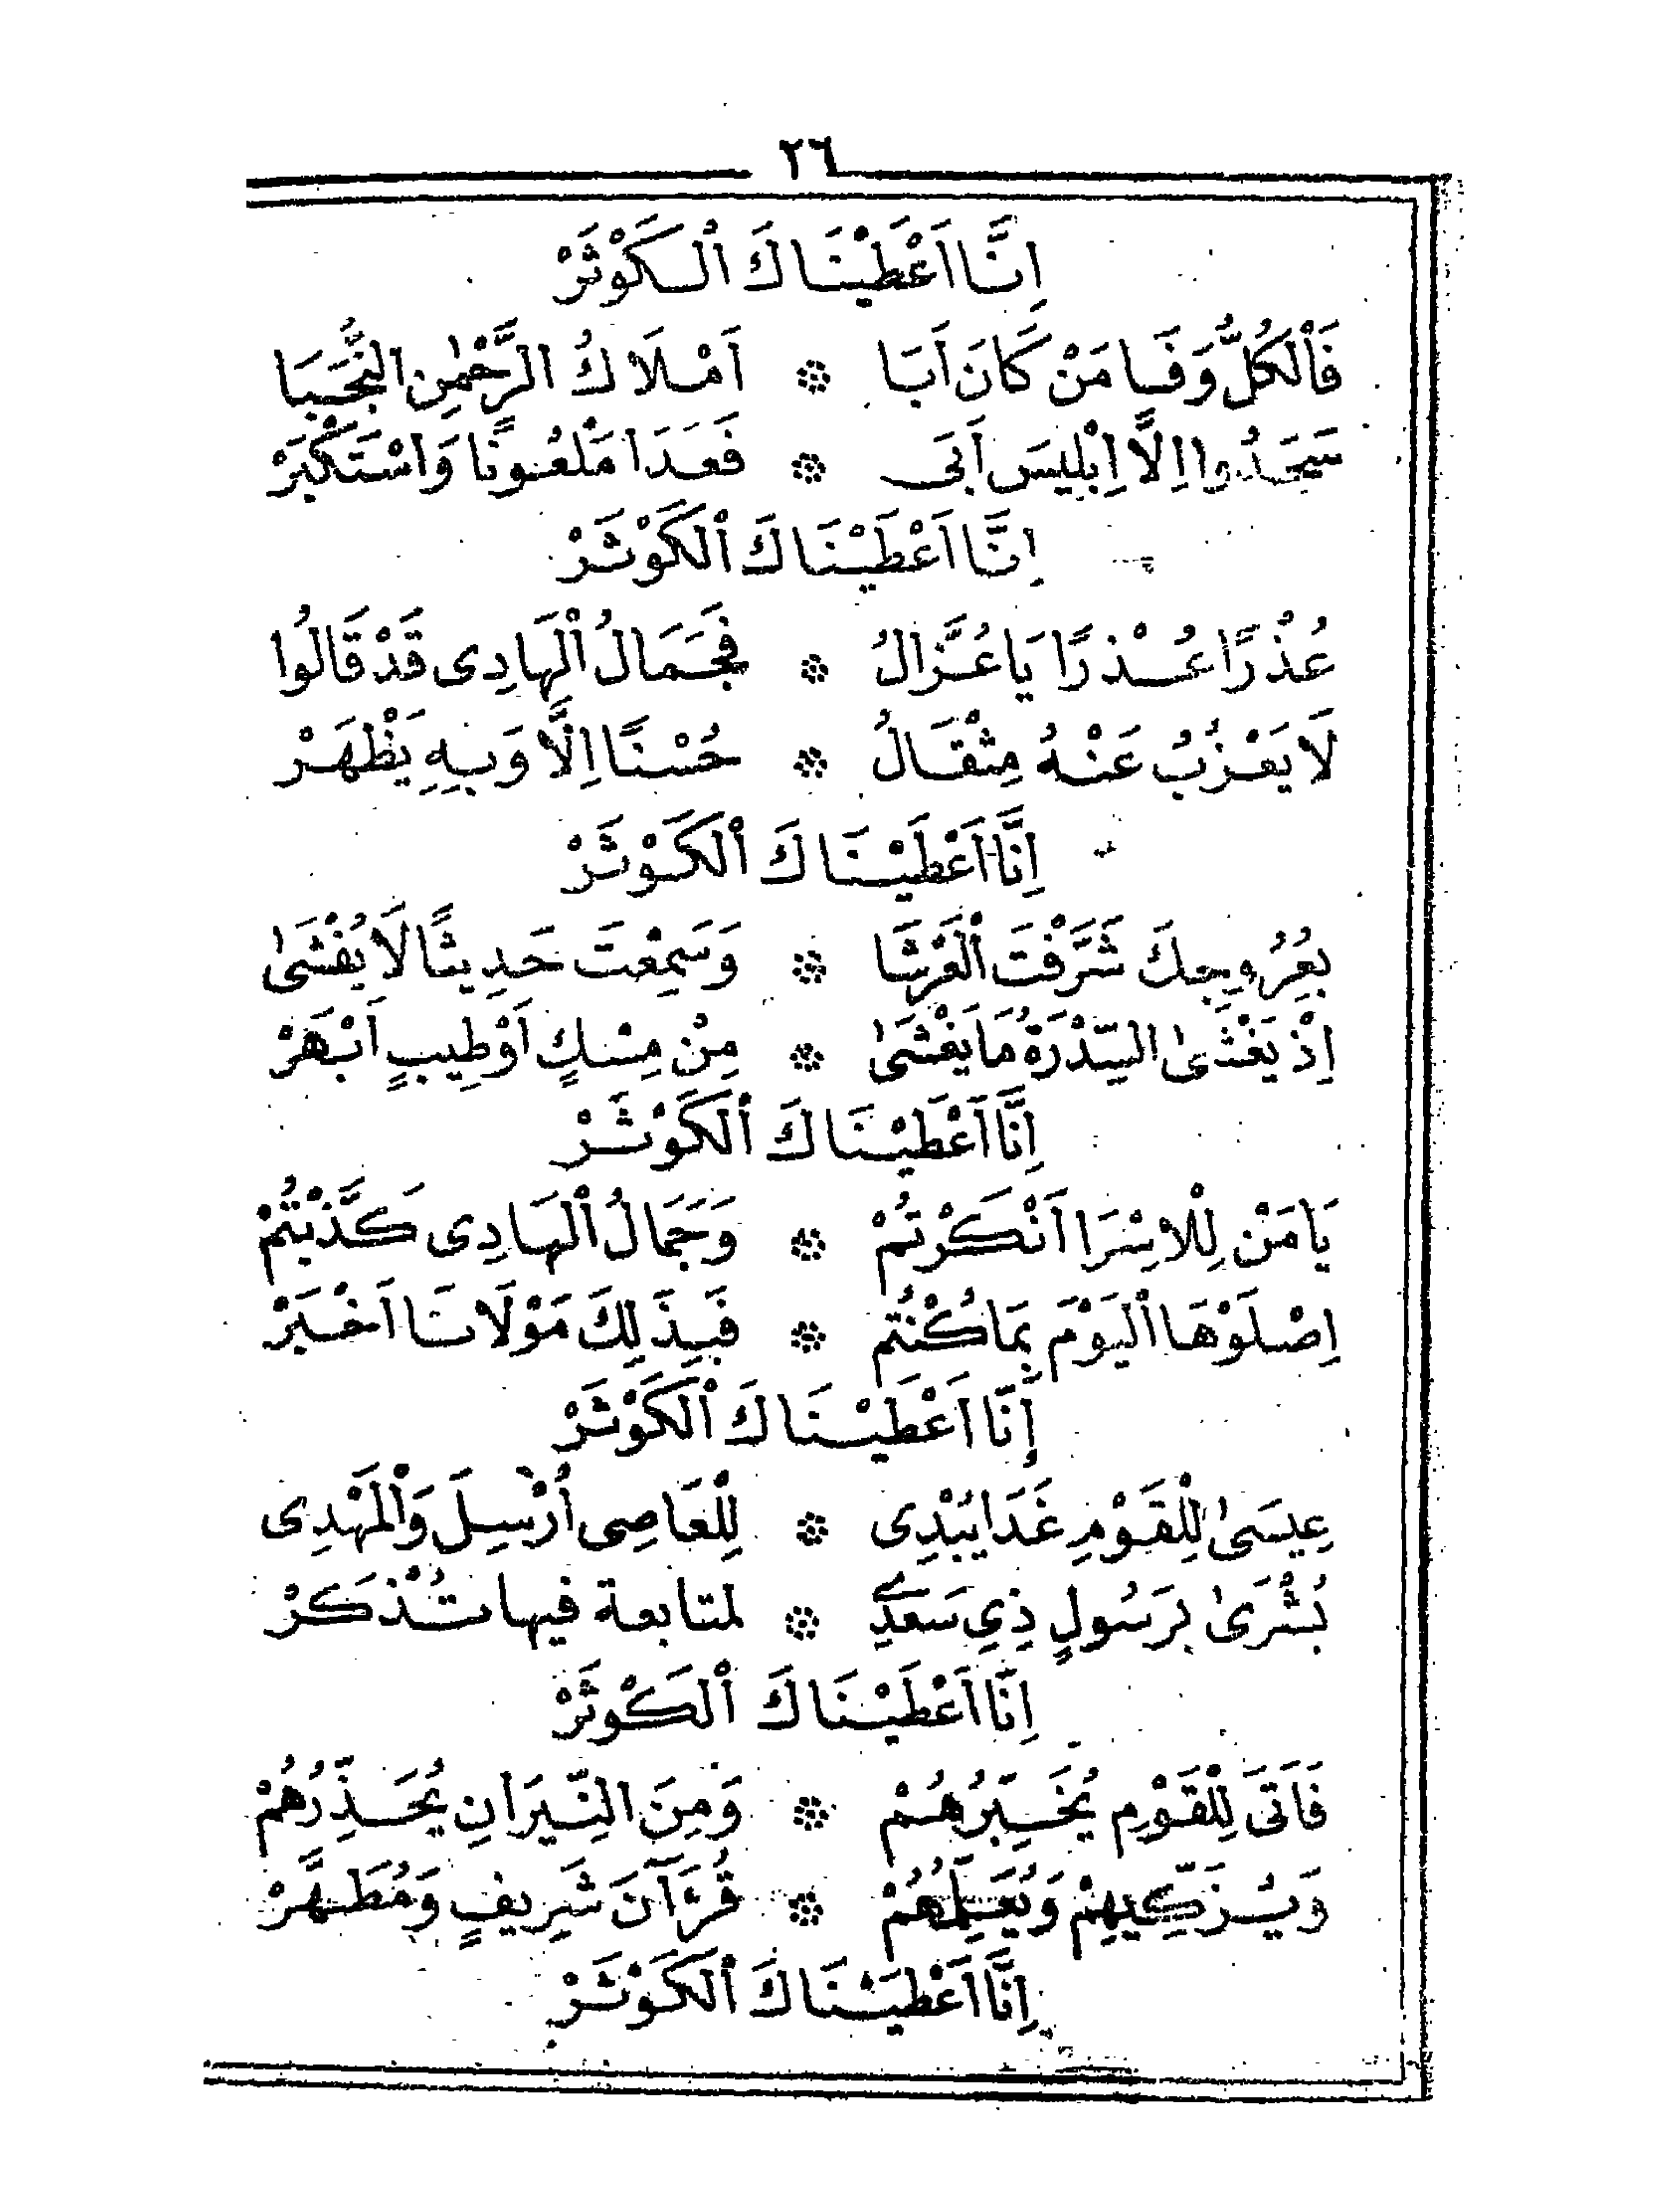 ٢٦
اِنَّا اَعْطَيْنَاكَ اْلكَوْثَرْ
فَاْلكُلُّ وَفَا مَنْ كَانَ اَبَا ۞ اَمْلَاكُ الرَّحْمٰنِ النُّجَبَا
سَجَدُوا اِلَّا اِبْلِيسَ اَبَى ۞ فَغَدَا مَلْعُونًا وَاسْتَكْبَرْ
اِنَّا اَعْطَيْنَاكَ اْلكَوْثَرْ
عُذْرًا عُذْرًا يَا عُزَّالُ ۞ فَجَمَالُ اْلهَادِى قَدْ قَالُوا
لَا يَعْزُبُ عَنْهُ مِثْقَالُ ۞ حُسْنًا اِلَّا وَبِهِ يَظْهَرْ
اِنَّا اَعْطَيْنَاكَ اْلكَوْثَرْ
بِعُرُوجِكَ شَرَّفْتَ اْلعَرْشَا ۞ وَسَمِعْتَ حَدِيثًا لَا يُفْشَىٰ
اِذْ يَغْشَىٰ السِّدْرَةُ مَا يَغْشَىٰ ۞ مِنْ مِسْكٍ اَوْ طِيبٍ اَبْهَرْ
اِنَّا اَعْطَيْنَاكَ اْلكَوْثَرْ
يَا مَنْ لِلْاِسْرَا اَنْكَرْتُمْ ۞ وَجَمَالُ اْلهَادِى كَذَّبْتُمْ
اِصْلَوْهَا اْليَوْمَ بِمَا كُنْتُمْ ۞ فَبِذَلِكَ مَوْلَانَا اَخْبَرْ
اِنَّا اَعْطَيْنَاكَ اْلكَوْثَرْ
عِيسَىٰ لِلْقَوْمِ غَدَا يُبْدِى ۞ لِلْعَاصِى اُرْسِلَ وَاْلمَهْدِى
بُشْرَىٰ بِرَسُولٍ ذِي سَعْدِ ۞ لمتابعة فيها تُذْكَرْ
اِنَّا اَعْطَيْنَاكَ اْلكَوْثَرْ
فَاَتَى لِلْقَوْمِ يُخَبِّرُهُمْ ۞ وَمِنَ النِّيرَانِ يُحَذِّرُهُمْ
وَيُزَكِّيهِمْ وَيُعَلِّمُهُمْ ۞ قُرْآنَ شَرِيفٍ وَمُطَهَّرْ
اِنَّا اَعْطَيْنَاكَ اْلكَوْثَرْ